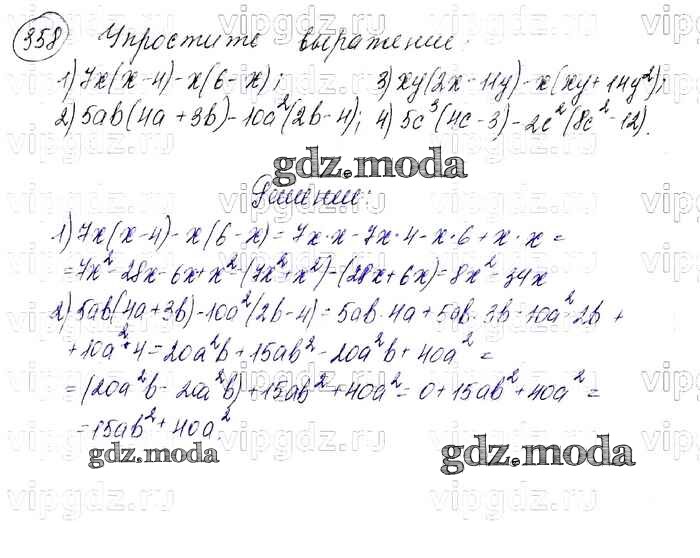 358 Упростите выражение:
1) 7x(x-4)-x(6-x); 3) xy(2x-14y)-x(xy+14y²);
2) 5ab(4a+3b)-10a²(2b-4); 4) 5c³(4c-3)-2c²(8c²-12).
gdz.moda
Решение:
1) 7x(x-4)-x(6-x)=7x·x-7x·4-x·6+x·x=
=7x²-28x-6x+x²=(7x²+x²)-(28x+6x)=8x²-34x
2) 5ab(4a+3b)-10a²(2b-4)=5ab·4a+5ab·3b-10a²·2b+
+10a²·4=20a²b+15ab²-20a²b+40a²=
=(20a²b-20a²b)+15ab²+40a²=0+15ab²+40a²=
=15ab²+40a².
gdz.moda gdz.moda
vipgdz.ru